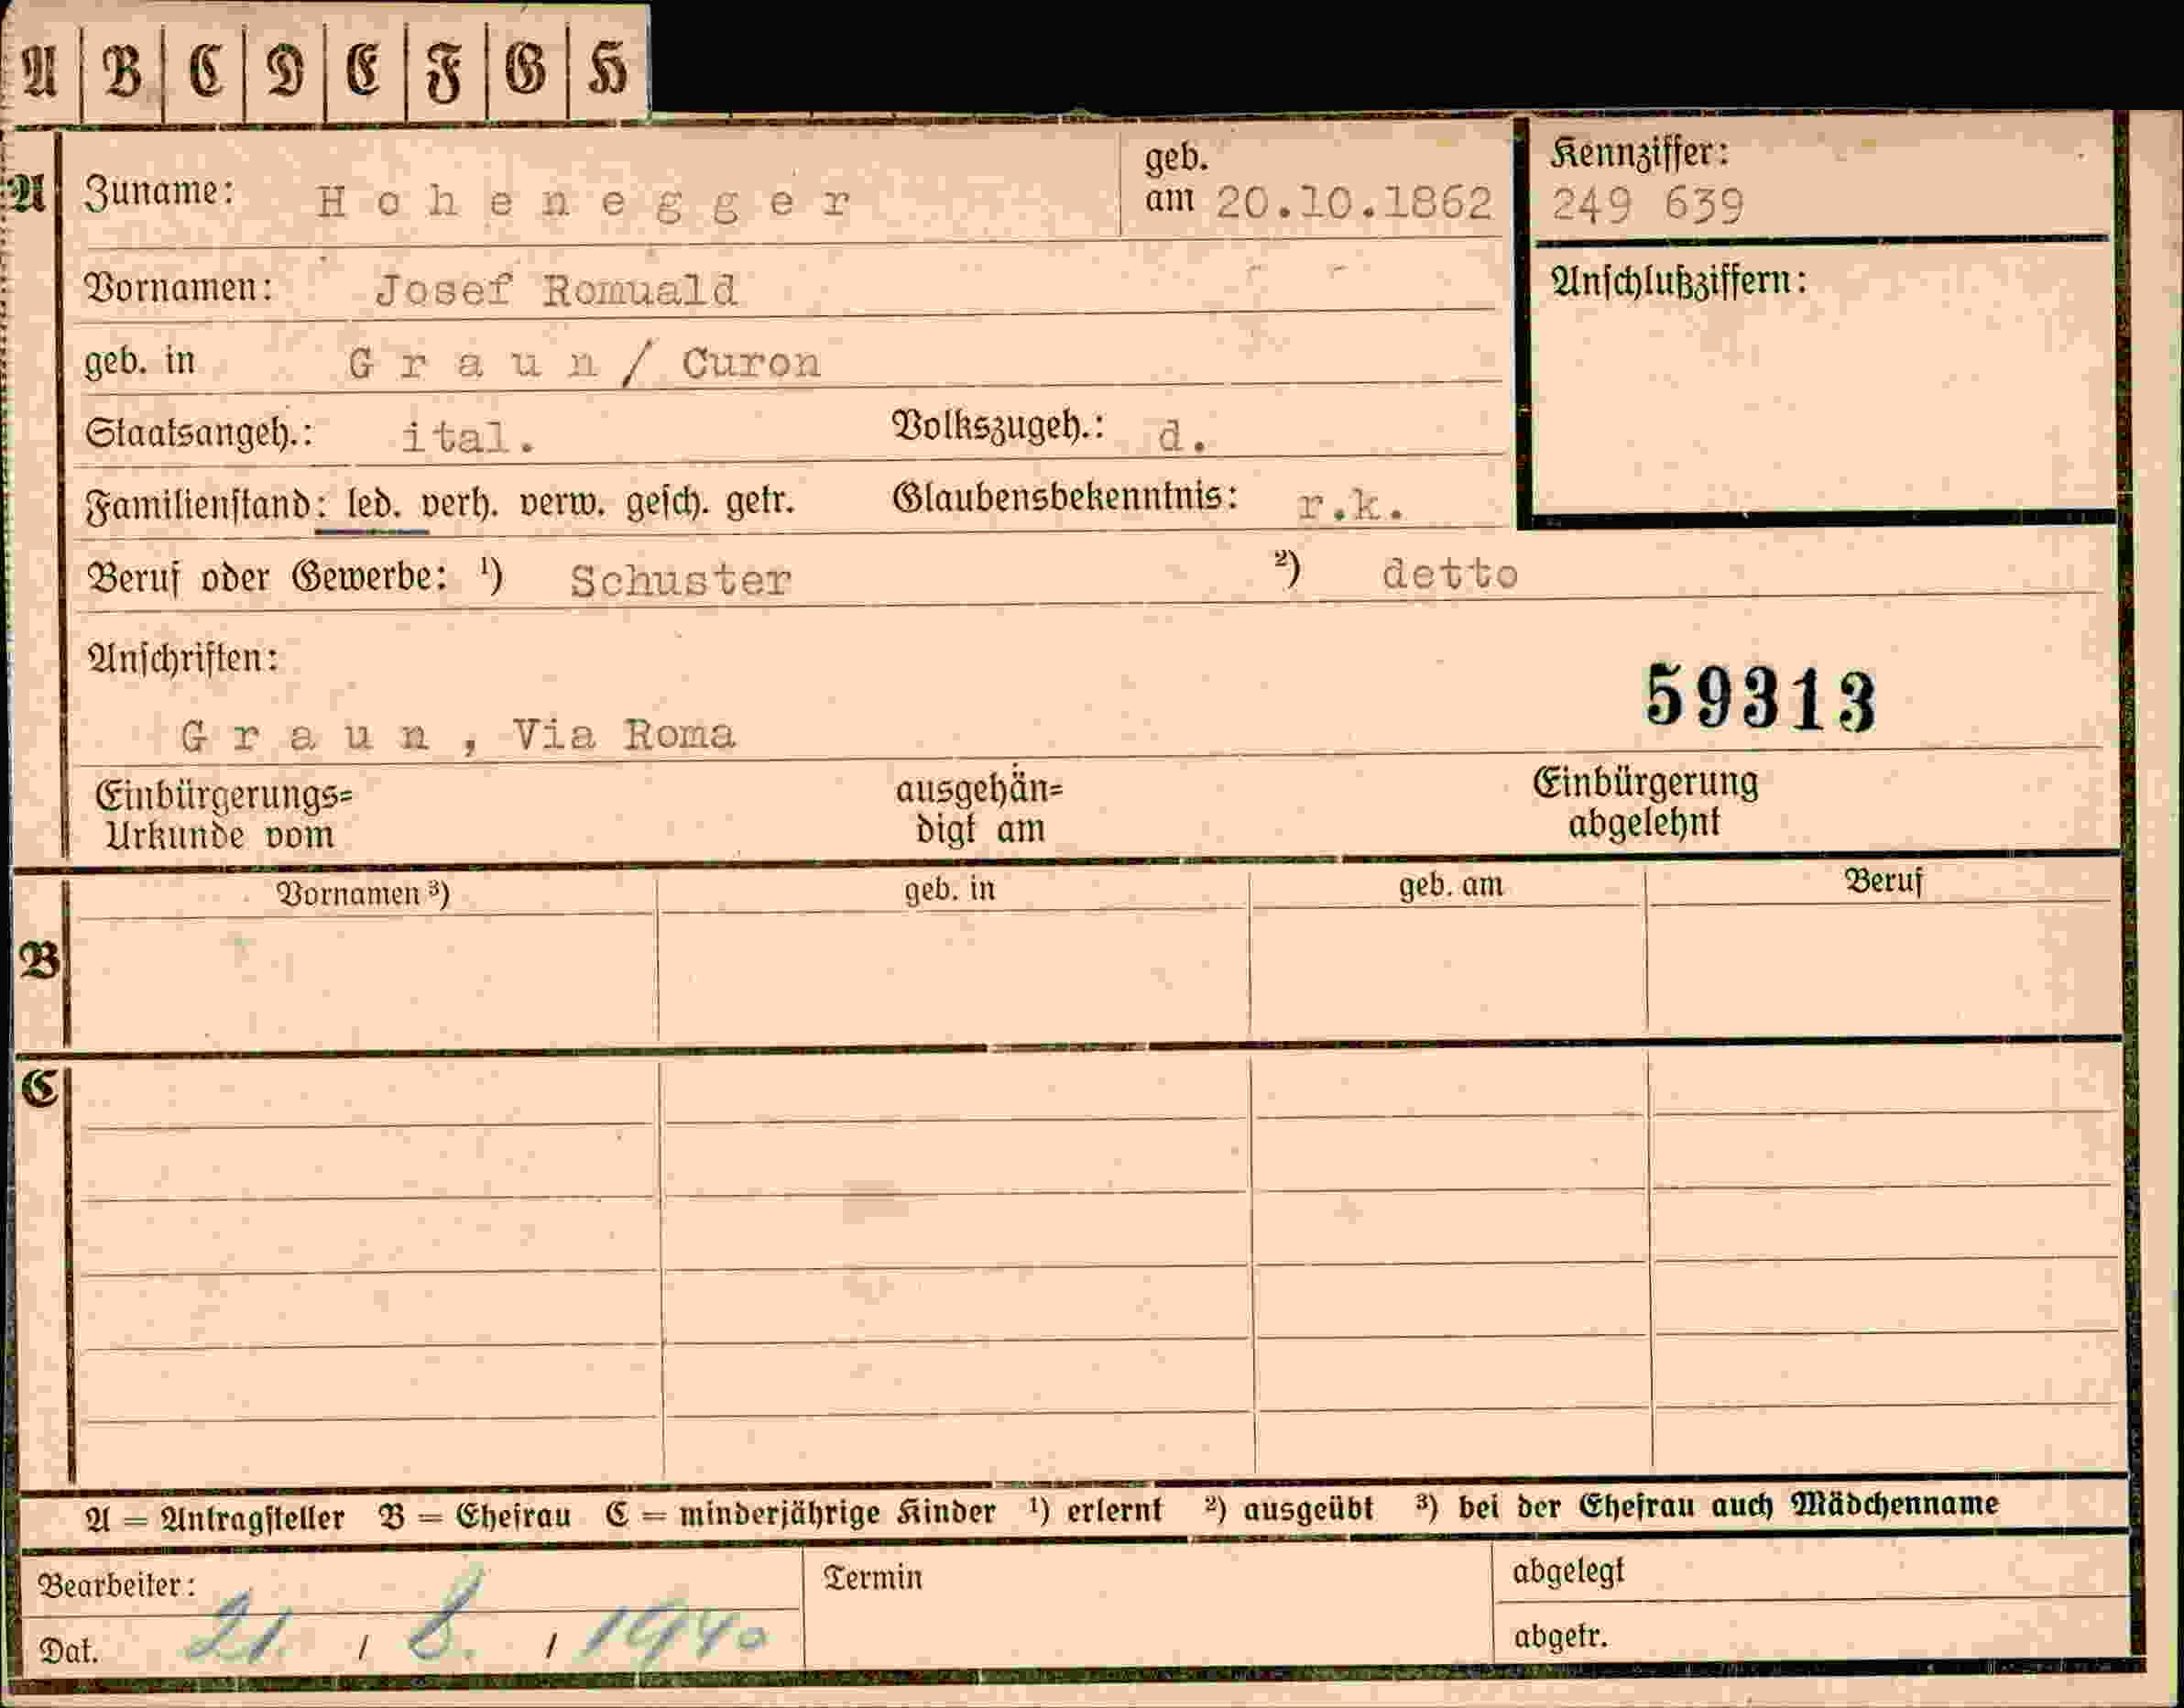 A B C D E F G H
A
Zuname: Hohenegger
geb.
am 20.10.1862
Kennziffer:
249 639
Vornamen: Josef Romuald
Anschlußziffern:
geb. in Graun/ Curon
Staatsangeh.: ital. Volkszugeh.: d.
Familienstand: led. verh. verw. gesch. getr. Glaubensbekenntnis: r.k.
Beruf oder Gewerbe: ¹) Schuster ²) detto
Anschriften:
59313
Graun, Via Roma
Einbürgerungs=
Urkunde vom
ausgehän=
digt am
Einbürgerung
abgelehnt
B
Vornamen ³) geb. in geb. am Beruf
C
A = Antragsteller B = Ehefrau C = minderjährige Kinder ¹) erlernt ²) ausgeübt ³) bei der Ehefrau auch Mädchenname
Bearbeiter:
Termin
abgelegt
Dat. 21. / 8. / 1940
abgetr.